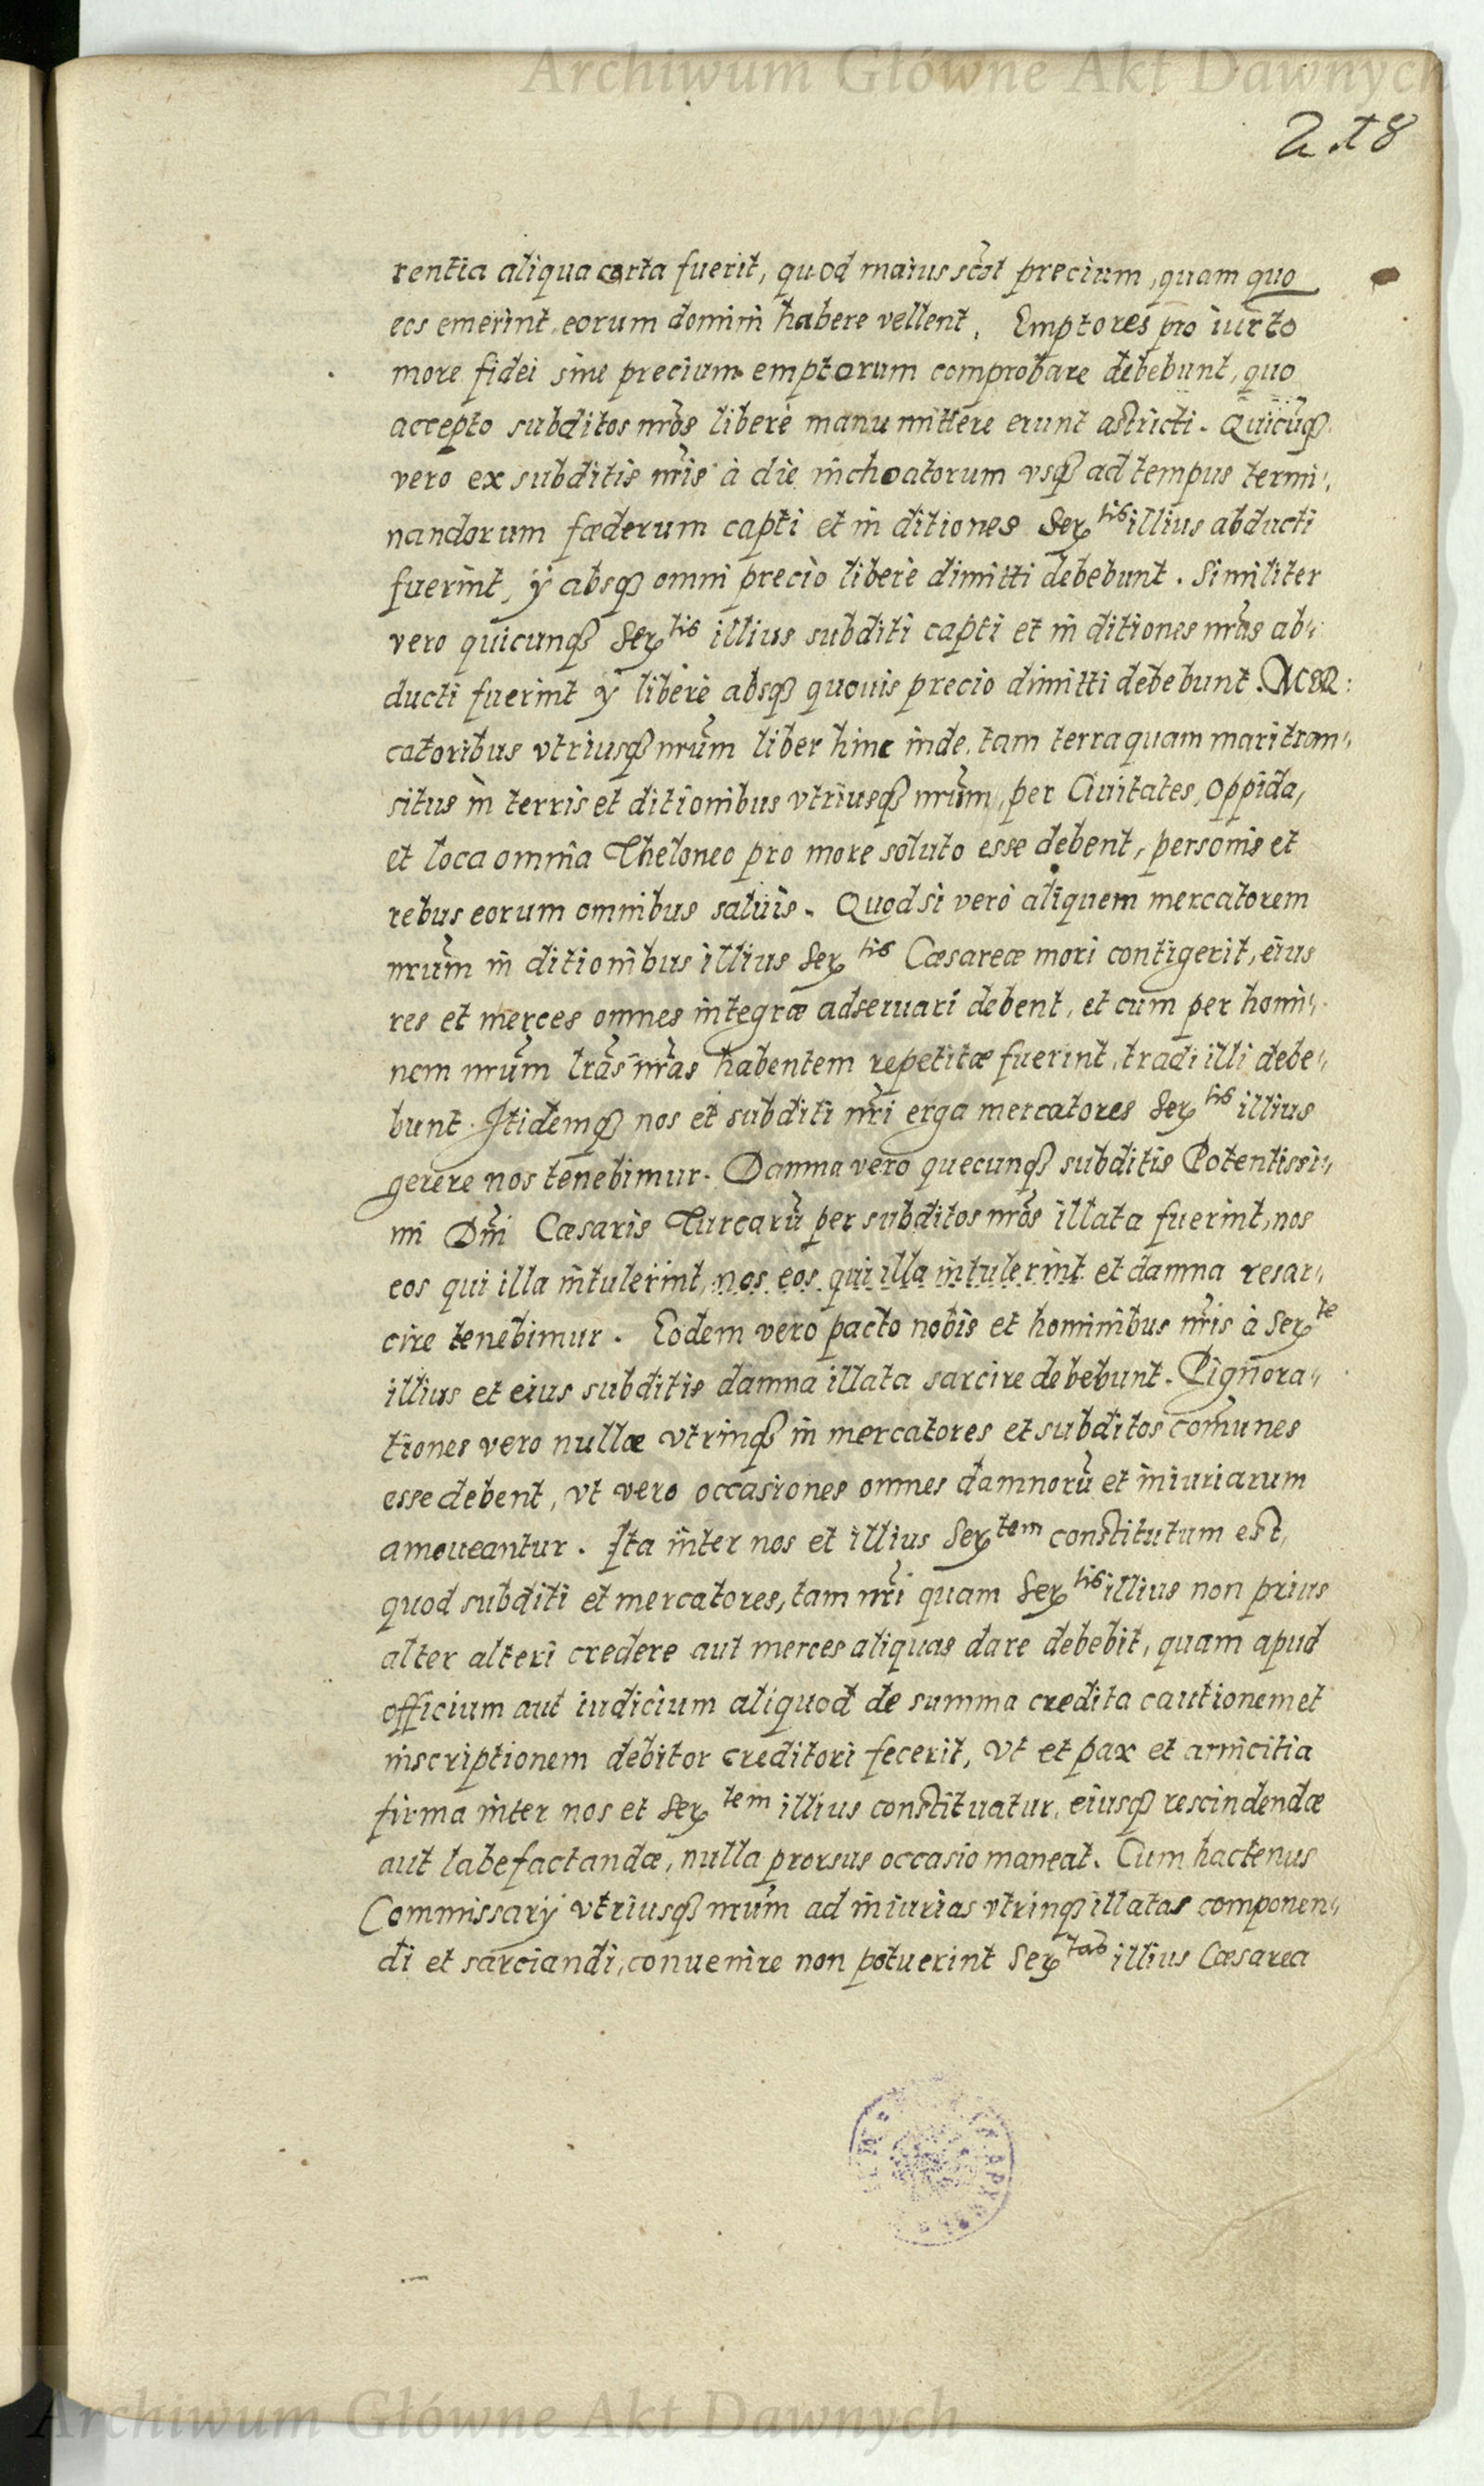 Archiwum Główne Akt Dawnych
218
rentia aliqua orta fuerit, quod maius precium, quam quo
eos emerint, eorum domini habere vellent. Emptores pro iurto
more fidei sine precium emptorum comprobare debebunt, quo
accepto subditos nr̃os liberè manu mittere erunt astricti. Quicũq̃
vero ex subditis nr̃is à die inchoatorum vsq̃ ad tempus termi„
nandorum fœderum capti et in ditiones Serᵗⁱˢ illius abducti
fuerint, ÿ absq̃ omni precio liberè dimitti debebunt. Similiter
vero quicunq̃ Serᵗⁱˢ illius subditi capti et in ditiones nr̃as ab„
ducti fuerint ÿ liberè absq̃ quouis precio dimitti debebunt. Mer:
catoribus vtriusq̃ nr̃um liber hinc inde, tam terra quam mari tran„
situs in terris et ditionibus vtriusq̃ nr̃um, per Ciuitates, Oppida,
et loca omnia Theloneo pro more soluto esse debent, personis et
rebus eorum omnibus saluis. Quod si verò aliquem mercatorem
nr̃um in ditionibus illius Serᵗⁱˢ Cæsareæ mori contigerit, eius
res et merces omnes integræ adseruari debent, et cum per homi„
nem nr̃um lr̃as nr̃as habentem repetitæ fuerint, tradi illi debe„
bunt. Itidemq̃ nos et subditi nr̃i erga mercatores Serᵗⁱˢ illius
gerere nos tenebimur. Damna vero quecunq̃ subditis Potentissi„
mi Dñi Cæsaris Turcarũ per subditos nr̃os illata fuerint, nos
eos qui illa intulerint, nos eos qui illa intulerint et damna resar„
cire tenebimur. Eodem vero pacto nobis et hominibus nr̃is à Serᵗᵉ
illius et eius subditis damna illata sarcire debebunt. Pignora„
tiones vero nullæ vtrinq̃ in mercatores et subditos com̃unes
esse debent, vt vero occasiones omnes damnorũ et iniuriarum
amoueantur. Ita inter nos et illius Serᵗᵉᵐ constitutum est,
quod subditi et mercatores, tam nr̃i quam Serᵗⁱˢ illius non prius
alter alteri credere aut merces aliquas dare debebit, quam apud
officium aut iudicium aliquod de summa credita cautionem et
inscriptionem debitor creditori fecerit, vt et pax et amicitia
firma inter nos et Serᵗᵉᵐ illius constituatur, eiusq̃ rescindendæ
aut labefactandæ, nulla prorsus occasio maneat. Cum hactenus
Commissarÿ vtriusq̃ nr̃um ad iniurias vtrinq̃ illatas componen„
di et sarciandi, conuenire non potuerint Serᵗᵃˢ illius Cæsarea
Archiwum Główne Akt Dawnych